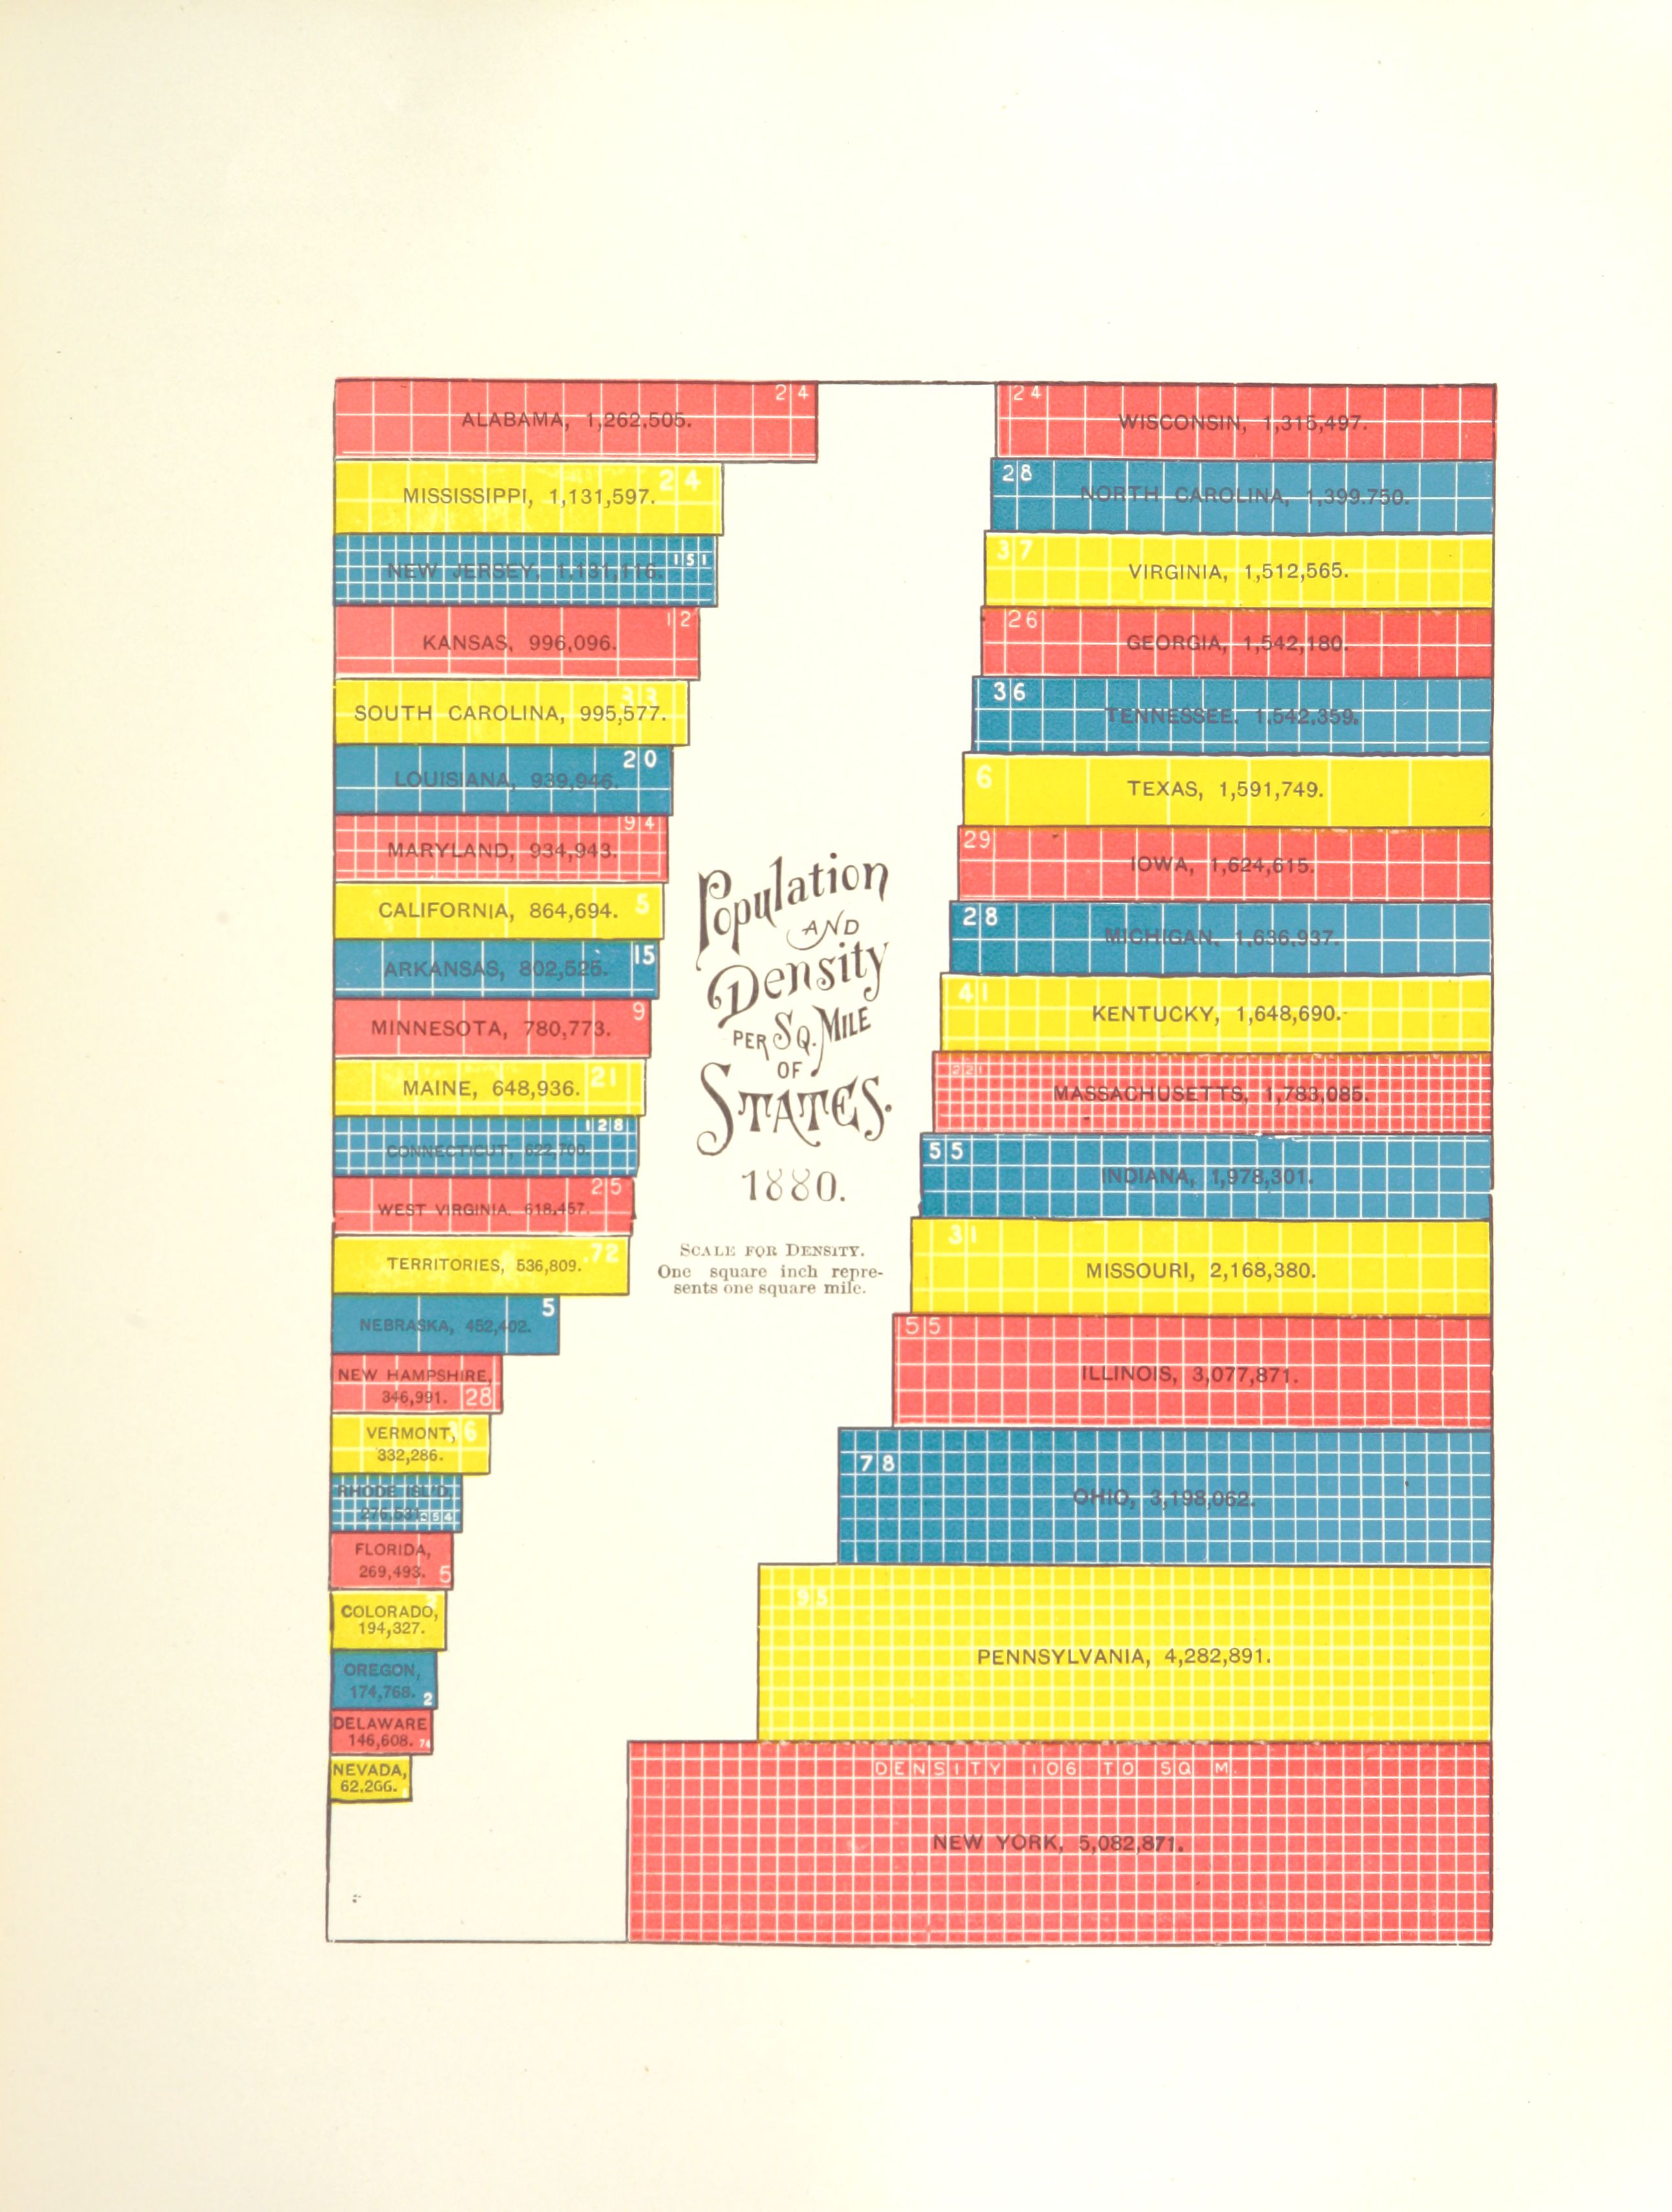 24
ALABAMA, 1,262,505.
24
MISSISSIPPI, 1,131,597.
151
NEW JERSEY, 1,131,116.
12
KANSAS, 996,096.
33
SOUTH CAROLINA, 995,577.
20
LOUISIANA, 939,946.
94
MARYLAND, 934,943.
CALIFORNIA, 864,694. 5
15
ARKANSAS, 802,525.
9
MINNESOTA, 780,773.
21
MAINE, 648,936.
128
CONNECTICUT, 622,700.
25
WEST VIRGINIA. 618,457.
72
TERRITORIES, 536,809.
5
NEBRASKA, 452,402.
NEW HAMPSHIRE,
346,991. 28
VERMONT, 36
332,286.
RHODE ISL'D,
276,531. 254
FLORIDA,
269,493. 5
COLORADO,
194,327.
OREGON,
174,768. 2
DELAWARE
146,608. 74
NEVADA,
62,266.
Population
AND
Density
PER SQ. MILE
OF
STATES.
1880.
SCALE FOR DENSITY.
One square inch repre-
sents one square mile.
24
WISCONSIN, 1,315,497.
28
NORTH CAROLINA, 1,399.750.
37
VIRGINIA, 1,512,565.
26
GEORGIA, 1,542,180.
36
TENNESSEE. 1,542,359.
6
TEXAS, 1,591,749.
29
IOWA, 1,624,615.
28
MICHIGAN, 1,636,937.
41
KENTUCKY, 1,648,690.
221
MASSACHUSETTS, 1,783,085.
55
INDIANA, 1,978,301.
31
MISSOURI, 2,168,380.
55
ILLINOIS, 3,077,871.
78
OHIO, 3,198,062.
95
PENNSYLVANIA, 4,282,891.
DENSITY 106 TO SQ M.
NEW YORK, 5,082,871.